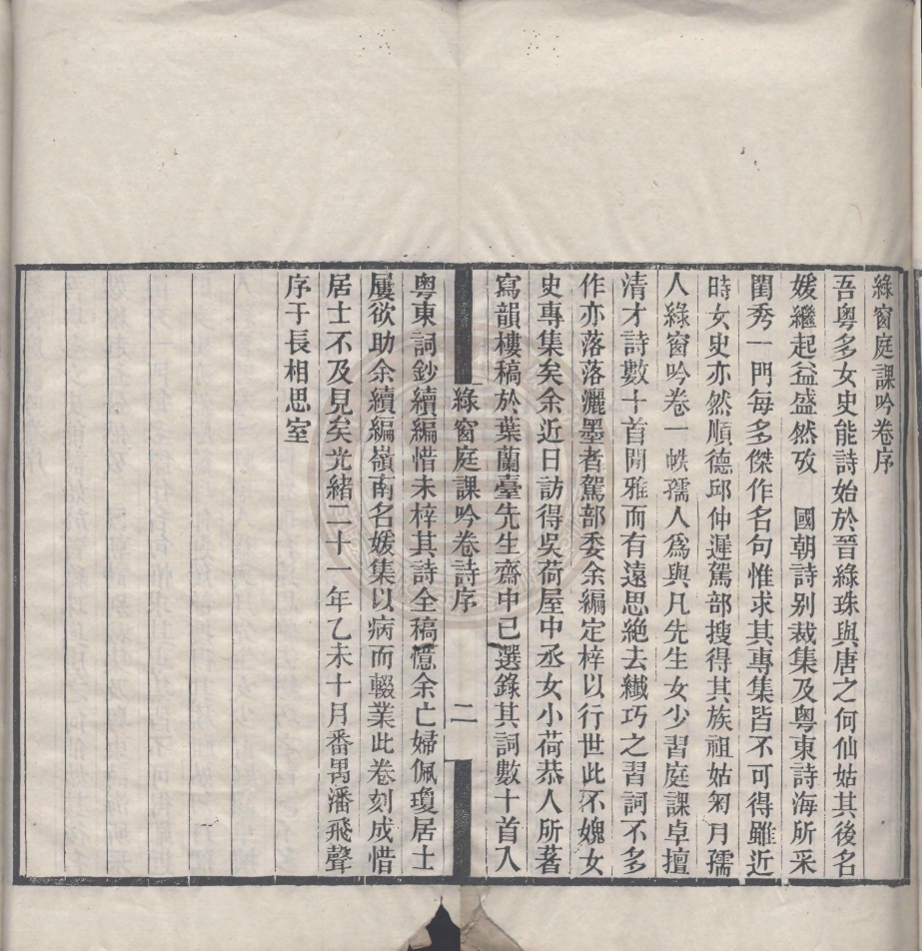 綠窗庭課吟卷序
吾粵多女史能詩始於晉綠珠與唐之何仙姑其後名
媛繼起益盛然攷　國朝詩別裁集及粵東詩海所采
閨秀一門每多傑作名句惟求其專集皆不可得雖近
時女史亦然順德邱仲遲駕部搜得其族祖姑匊月孺
人綠窗吟卷一帙孺人爲與凡先生女少習庭課卓擅
清才詩數十首閒雅而有遠思絶去纎巧之習詞不多
作亦落落灑墨者駕部委余編定梓以行世此不媿女
史專集矣余近日訪得吳荷屋中丞女小荷恭人所著
寫韻樓稿於葉蘭臺先生齋中已選錄其詞數十首入
綠窗庭課吟卷詩序　二
粵東詞鈔續編惜未梓其詩全稿憶余亡婦佩瓊居士
屢欲助余續編嶺南名媛集以病而輟業此卷刻成惜
居士不及見矣光緒二十一年乙未十月番禺潘飛聲
序于長相思室